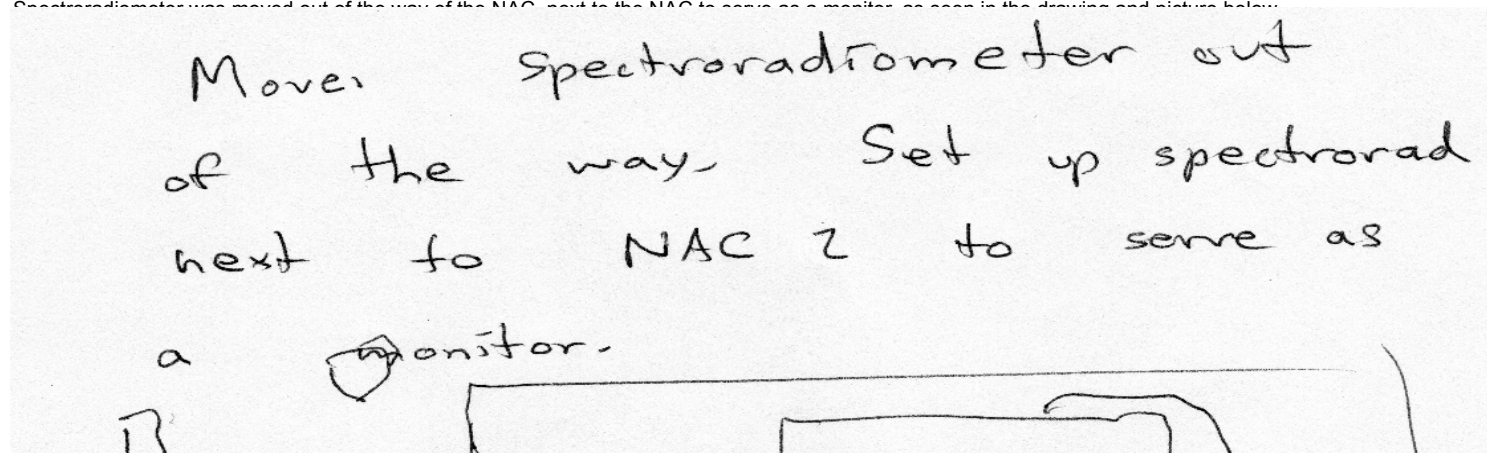 Spectroradiometer was moved out of the way of the NAC, next to the NAC to serve as a monitor, as seen in the drawing and picture below
Move, spectroradiometer out
of the way. Set up spectrorad
next to NAC 2 to serve as
a monitor.